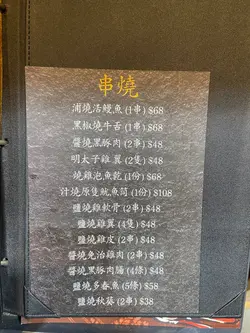 串燒
浦燒活鰻魚 (1串) $68
黑椒燒牛舌 (1串) $68
醬燒黑豚肉 (2串) $48
明太子雞翼 (2隻) $48
燒雞泡魚乾 (1份) $68
汁燒原隻魷魚筒 (1份) $108
鹽燒雞軟骨 (2串) $48
鹽燒雞翼 (4隻) $48
鹽燒雞皮 (2串) $48
醬燒免治雞肉 (2串) $48
醬燒黑豚肉腸 (4條) $48
鹽燒多春魚 (5條) $58
鹽燒秋葵 (2串) $38